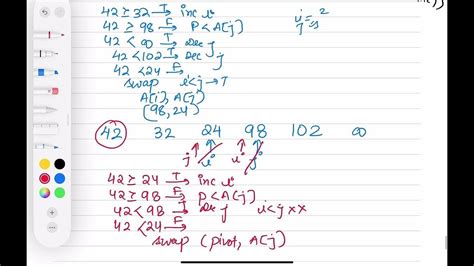 42 ≥ 32 T→ inc i
42 ≥ 98 F→ P < A[j]
42 < ∞ T→ Dec j
42 < 102 T→ Dec j
42 < 24 F→
swap i<j → T
A[i], A[j]
(98, 24)
42 32 24 98 102 ∞
j i i j
42 ≥ 24 T→ inc i
42 ≥ 98 F→ P < A[j]
42 < 98 T→ Dec j i<j xx
42 < 24 F→
swap (pivot, A[j])